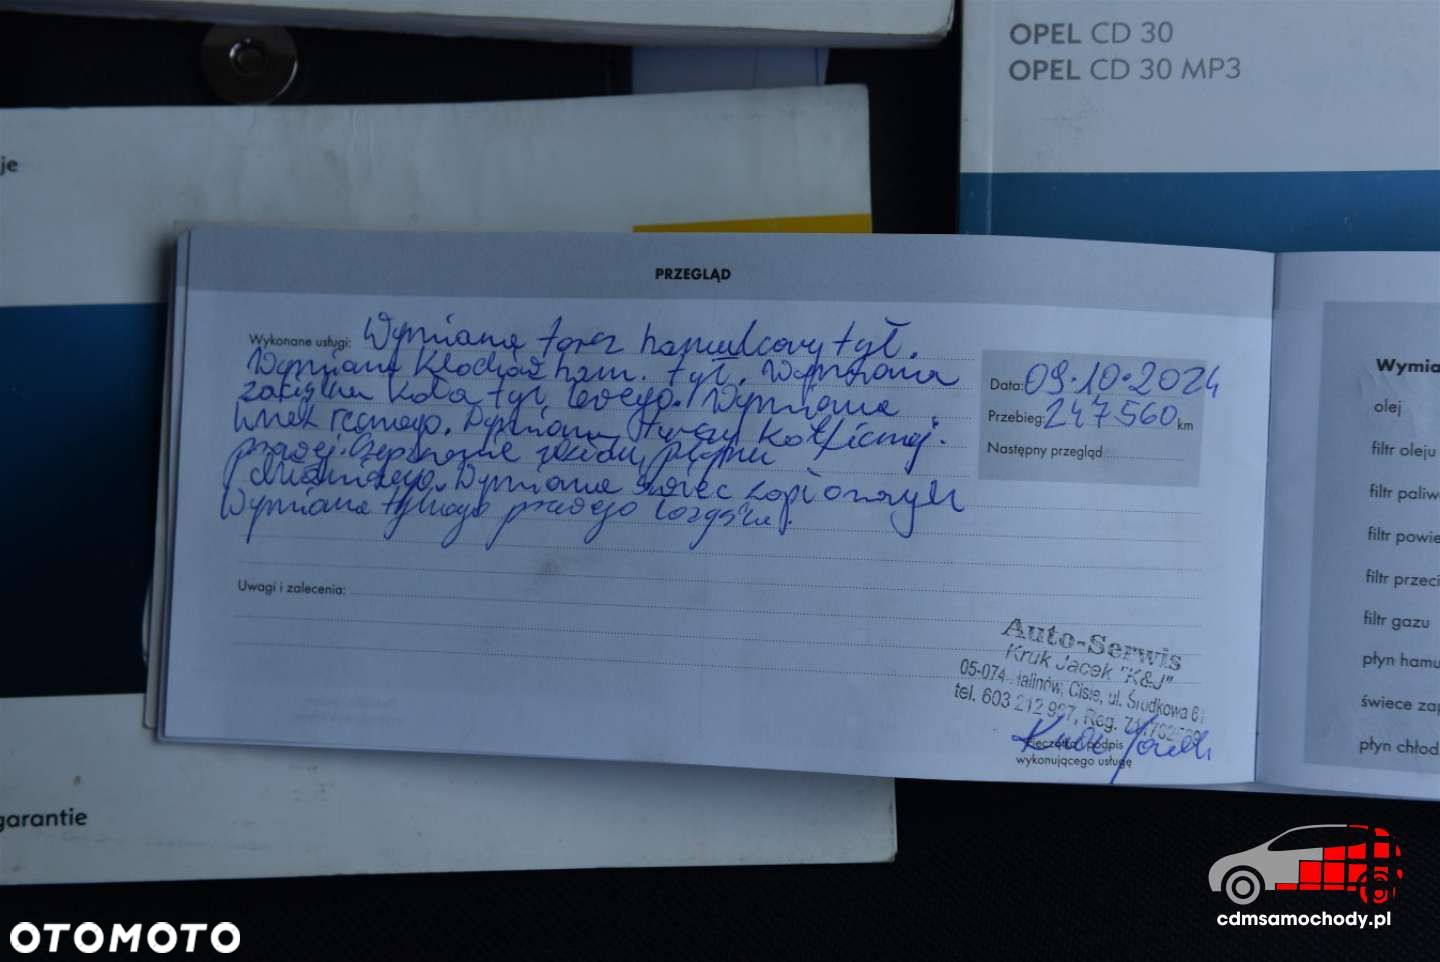 OPEL CD 30
OPEL CD 30 MP3
je
PRZEGLĄD
Wykonane usługi: Wymiana tarcz hamulcowy tył.
Wymiana Klocków ham. tył. Wymiana
zacisku koła tył lewego. Wymiana
linek ręcznego. Wymiana
prawej. płynu
Wymiana świec zapłonowych
Wymiana tylnego prawego łożyska.
Data: 09.10.2024
Przebieg: 247560 km
Następny przegląd
Uwagi i zalecenia:
Auto-Serwis
Kruk Jacek "K&J"
05-074 Halinów, Cisie, ul. Środkowa 61
tel. 603 212 997, Reg.
Pieczątka i podpis
wykonującego usługę
Wymia
olej
filtr oleju
filtr paliw
filtr powie
filtr przeci
filtr gazu
płyn hamu
świece zap
płyn chłod
garantie
cdmsamochody.pl
OTOMOTO